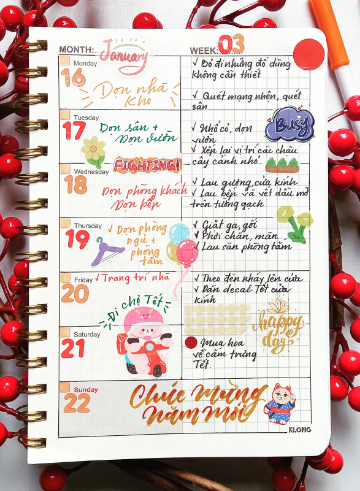 MONTH: January
WEEK: 03
Monday
16
Dọn nhà
kho
✓ Bỏ đi những đồ dùng
không cần thiết
✓ Quét mạng nhện, quét
sân
Tuesday
17
Dọn sân +
Dọn vườn
✓ Nhổ cỏ, dọn
vườn
✓ Xếp lại vị trí các chậu
cây cảnh nhỏ.
Busy
FIGHTING!
Wednesday
18
Dọn phòng khách
Dọn bếp
✓ Lau gương, cửa kính
✓ Lau bếp và vết dầu mỡ
trên tường gạch
Thursday
19
✓ Dọn phòng
ngủ +
phòng
tắm
✓ Giặt ga, gối
✓ Phơi chăn, màn
✓ Lau sàn phòng tắm
Friday
20
✓ Trang trí nhà
✓ Treo đèn nháy lên cửa
✓ Dán decal Tết cửa
kính
Saturday
21
Đi chợ Tết
Mua hoa
về cắm trưng
Tết.
happy
day
Sunday
22
Chúc mừng
năm mới
KLONG